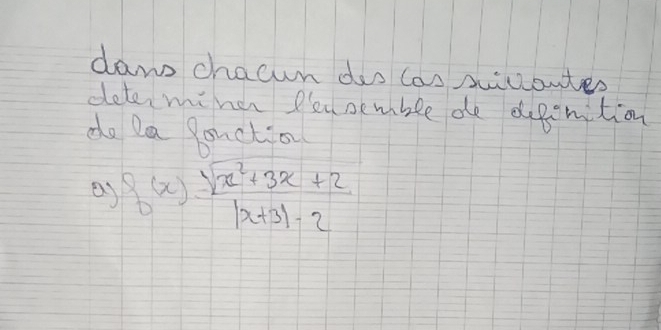 dans chacun des cas suivantes
determiner l'ensemble de definition
de la fonction
a) f(x) = √x²+3x+2
|x+3|-2